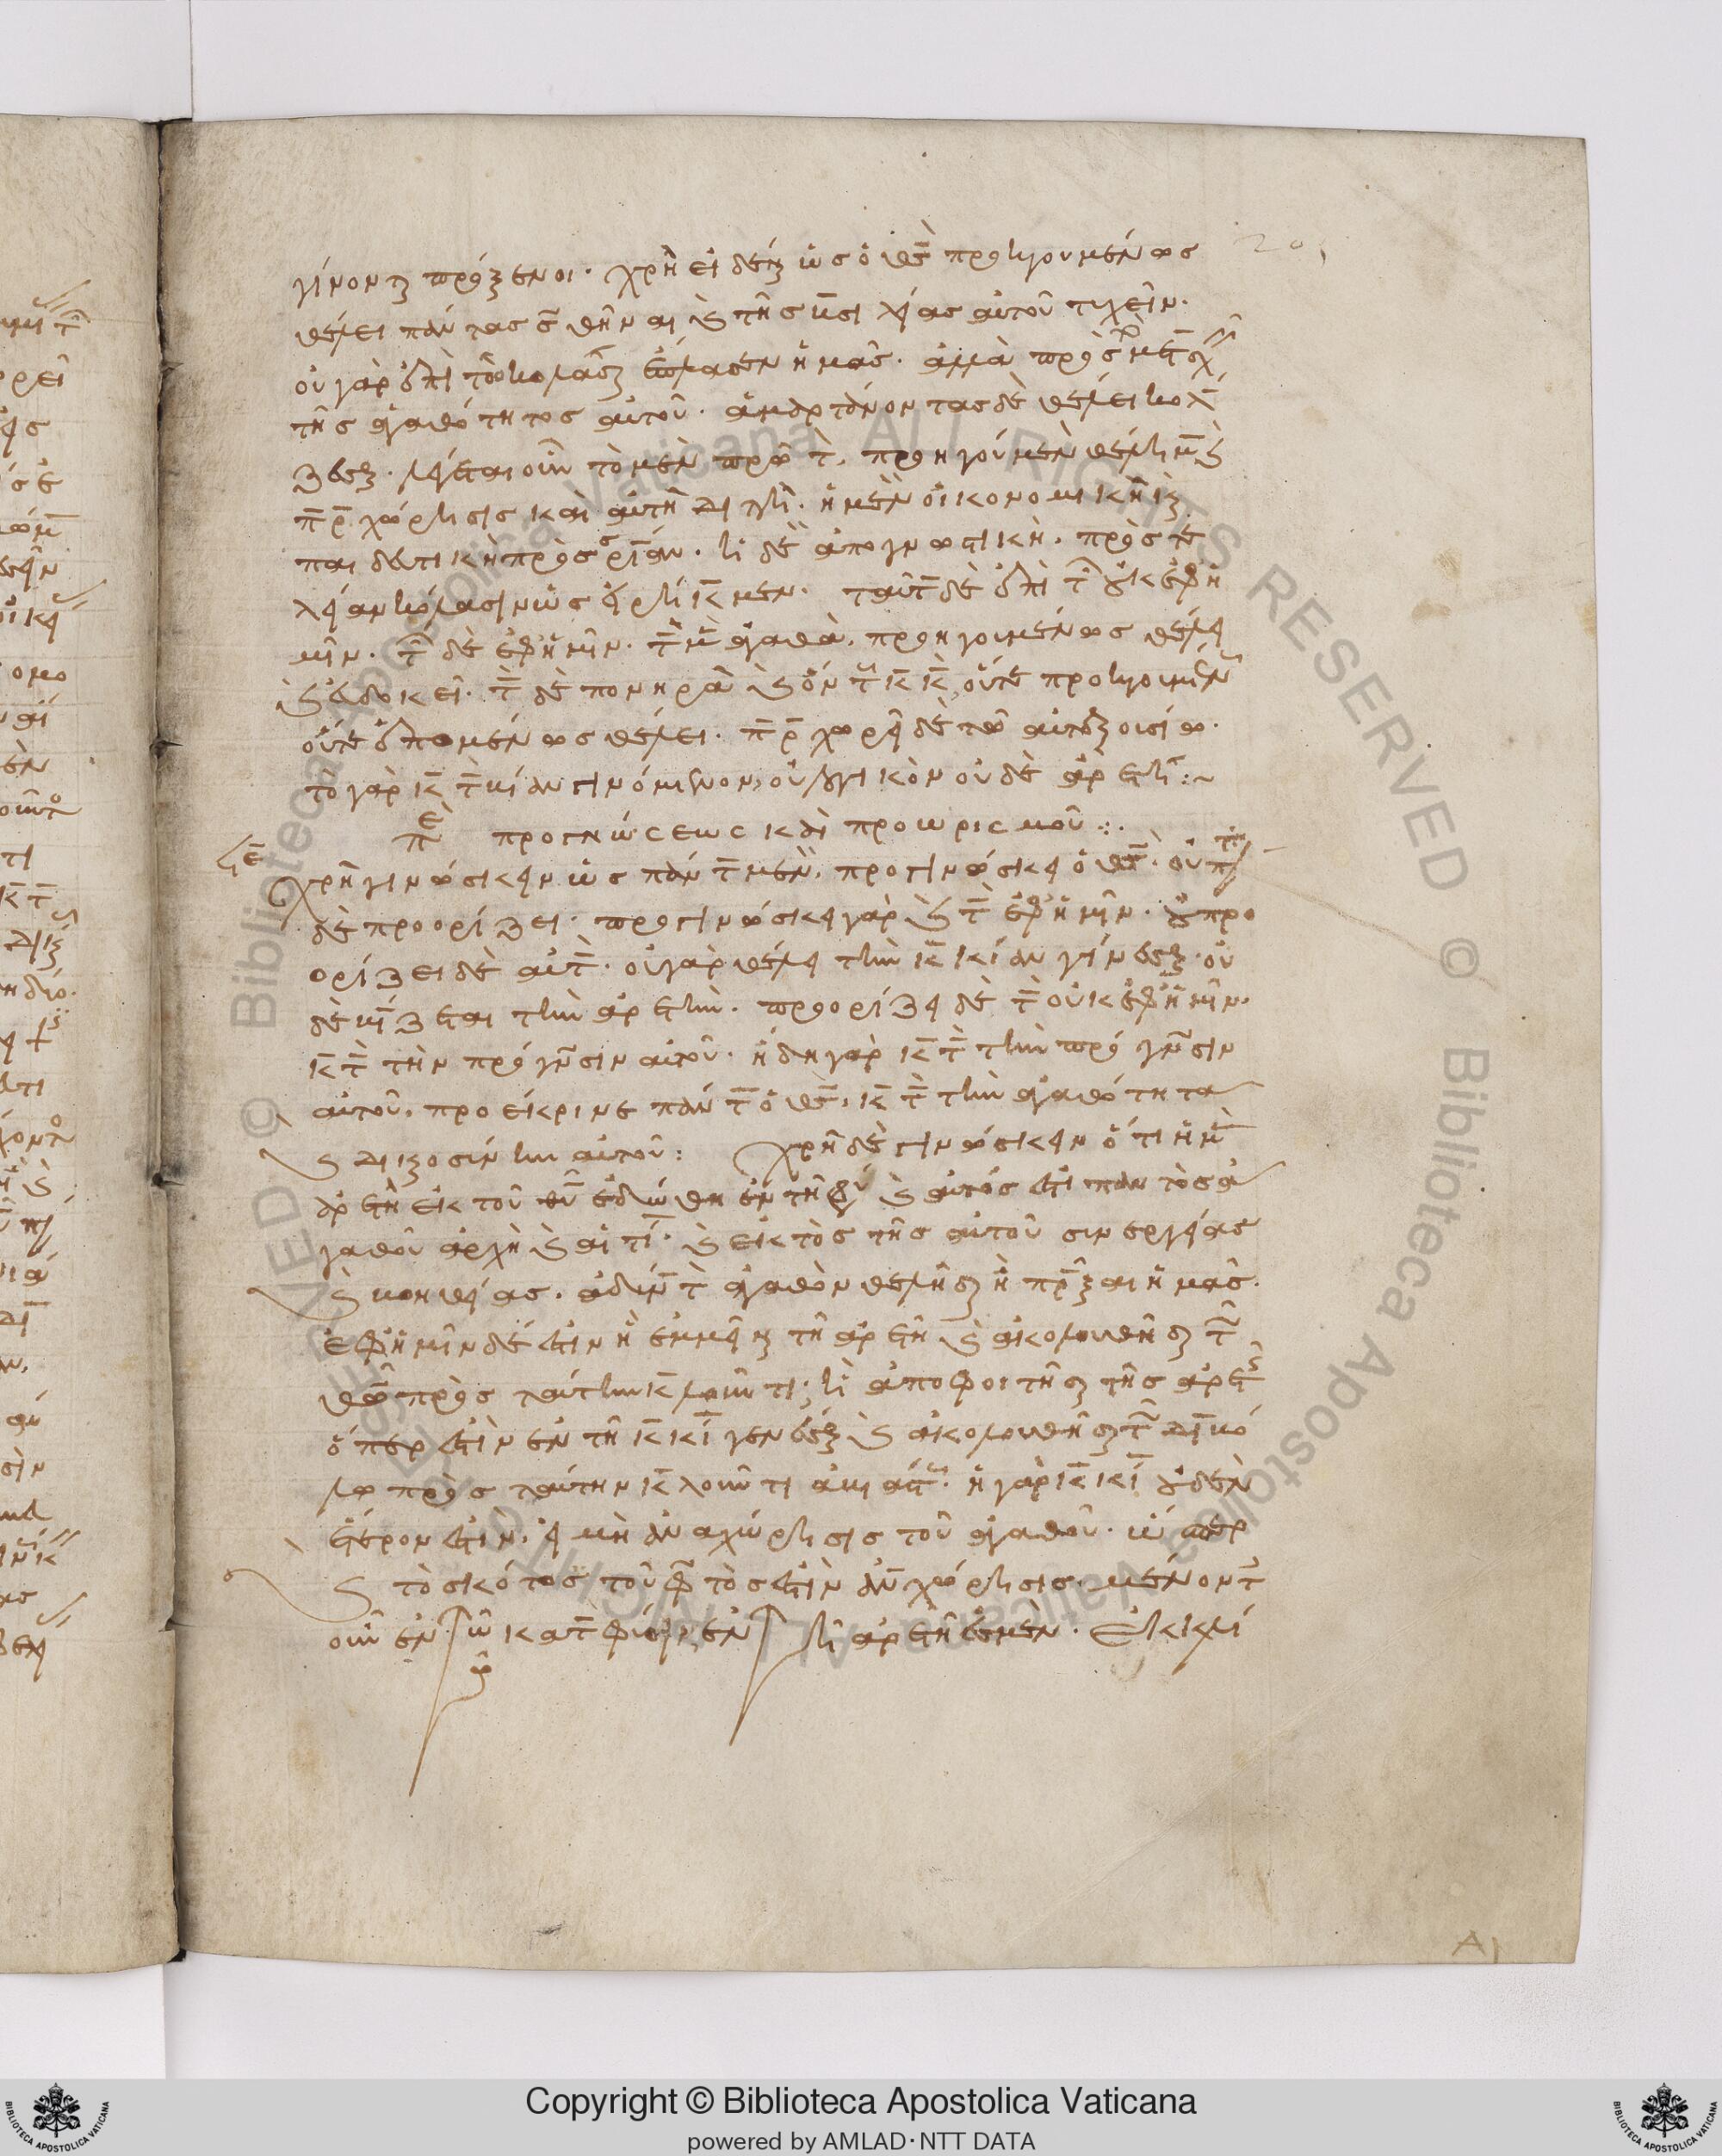 γίνονται πρόξενοι· χρὴ εἰδέναι ὡς ὁ θεὸς προηγουμένως
θέλει πάντας σωθῆναι καὶ τῆς βασιλείας αὐτοῦ τυχεῖν·
οὐ γὰρ ἐπὶ τὸ κολάσαι ἔπλασεν ἡμᾶς· ἀλλὰ πρὸς τὸ μετασχεῖν
τῆς ἀγαθότητος αὐτοῦ· ἁμαρτάνοντας δὲ θέλει κολά
ζεσθαι· λέγεται οὖν τὸ μὲν πρῶτον, προηγούμενον θέλημα καὶ
παραχώρησις καὶ αὐτὴ διπλῆ· ἡ μὲν οἰκονομικὴ καὶ
παιδευτικὴ πρὸς σωτηρίαν· ἡ δὲ ἀπογνωστικὴ, πρὸς τε
λείαν κόλασιν ὡς εἰρήκαμεν· ταῦτα δὲ ἐπὶ τῶν οὐκ ἐφ' ἡ
μῖν· τῶν δὲ ἐφ' ἡμῖν· τὰ μὲν ἀγαθὰ, προηγουμένως θέλει
καὶ εὐδοκεῖ· τὰ δὲ πονηρὰ καὶ ὄντως κακὰ, οὔτε προηγουμένως
οὔτε ἑπομένως θέλει· παραχωρεῖ δὲ τῷ αὐτεξουσίῳ·
τὸ γὰρ κατὰ βίαν γινόμενον, οὐ λογικὸν οὐδὲ ἀρετή :~
περὶ προγνώσεως καὶ προωρισμοῦ :·
Χρὴ γινώσκειν ὡς πάντα μὲν, προγινώσκει ὁ θεὸς· οὐ πάντα
δὲ προορίζει· προγινώσκει γὰρ καὶ τὰ ἐφ' ἡμῖν· οὐ προ
ορίζει δὲ αὐτὰ· οὐ γὰρ θέλει τὴν κακίαν γίνεσθαι· οὐ
δὲ βιάζεται τὴν ἀρετὴν· προορίζει δὲ τὰ οὐκ ἐφ' ἡμῖν·
κατὰ τὴν πρόγνωσιν αὐτοῦ· ἤδη γὰρ κατὰ τὴν πρόγνωσιν
αὐτοῦ, προέκρινε πάντα ὁ θεὸς, κατὰ τὴν ἀγαθότητα
καὶ δικαιοσύνην αὐτοῦ: Χρὴ δὲ γινώσκειν ὅτι ἡ μὲν
ἀρετὴ ἐκ τοῦ θεοῦ ἐδόθη ἐν τῇ φύσει καὶ αὐτός ἐστι παντὸς ἀ
γαθοῦ ἀρχὴ καὶ αἰτία· καὶ ἐκτὸς τῆς αὐτοῦ συνεργείας
καὶ βοηθείας, ἀδύνατον ἀγαθὸν θελῆσαι ἢ πρᾶξαι ἡμᾶς·
ἐφ' ἡμῖν δέ ἐστιν ἢ ἐμμεῖναι τῇ ἀρετῇ καὶ ἀκολουθῆσαι τῷ
θεῷ πρὸς ταύτην καλοῦντι· ἢ ἀποφοιτῆσαι τῆς ἀρετῆς
ὅπερ ἐστὶν ἐν τῇ κακίᾳ γενέσθαι καὶ ἀκολουθῆσαι τῷ διαβό
λῳ πρὸς ταύτην καλοῦντι ἀβιάστως· ἡ γὰρ κακία οὐδὲν
ἕτερόν ἐστιν, εἰ μὴ ἀναχώρησις τοῦ ἀγαθοῦ· ὥσπερ
καὶ τὸ σκότος τοῦ φωτὸς ἐστὶν ἀναχώρησις· μένοντες
οὖν ἐν τῷ κατὰ φύσιν, ἐν τῇ ἀρετῇ ἐσμὲν· ἐκκλί